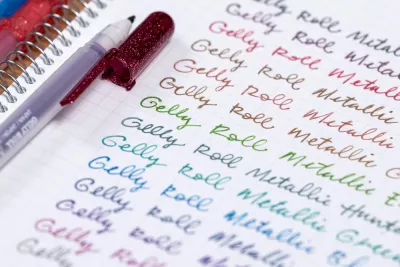 Gelly Roll Metallic
Gelly Roll Metallic
Gelly Roll Metallic
Gelly Roll Metallic
Gelly Roll Metallic
Gelly Roll Metallic
Gelly Roll Metallic
Gelly Roll Metallic Hunter
Gelly Roll Metallic Green
Gelly Roll Metallic Bl
Gelly Roll Metallic
Gelly Roll
Gelly Roll
Gelly